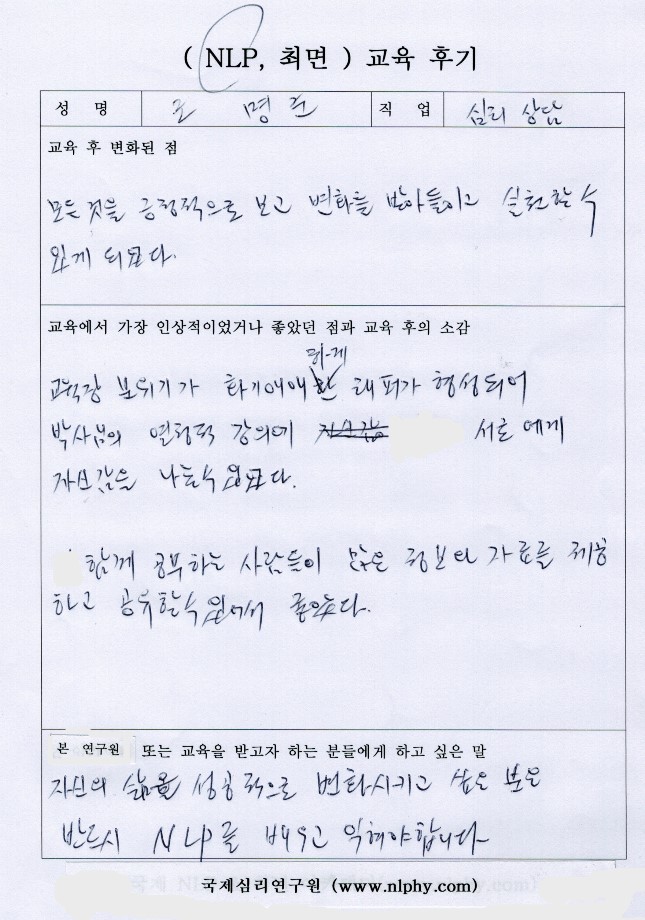 ( NLP, 최면 ) 교육 후기
성 명 조 명준 직 업 심리 상담
교육 후 변화된 점
모든것을 긍정적으로 보고 변화를 받아들이고 실천할 수
있게 되었다.
교육에서 가장 인상적이었거나 좋았던 점과 교육 후의 소감
하게
교육장 분위기가 화기애애한 래퍼가 형성되어
박사님의 열정적 강의에 자신감 서로에게
자신감을 나눌수있었다.
함께 공부하는 사람들이 많은 정보와 자료를 제공
하고 공유할수있어서 좋았다.
본 연구원 또는 교육을 받고자 하는 분들에게 하고 싶은 말
자신의 삶을 성공적으로 변화시키고 싶은 분은
반드시 NLP를 배우고 익혀야합니다
국제심리연구원 (www.nlphy.com)